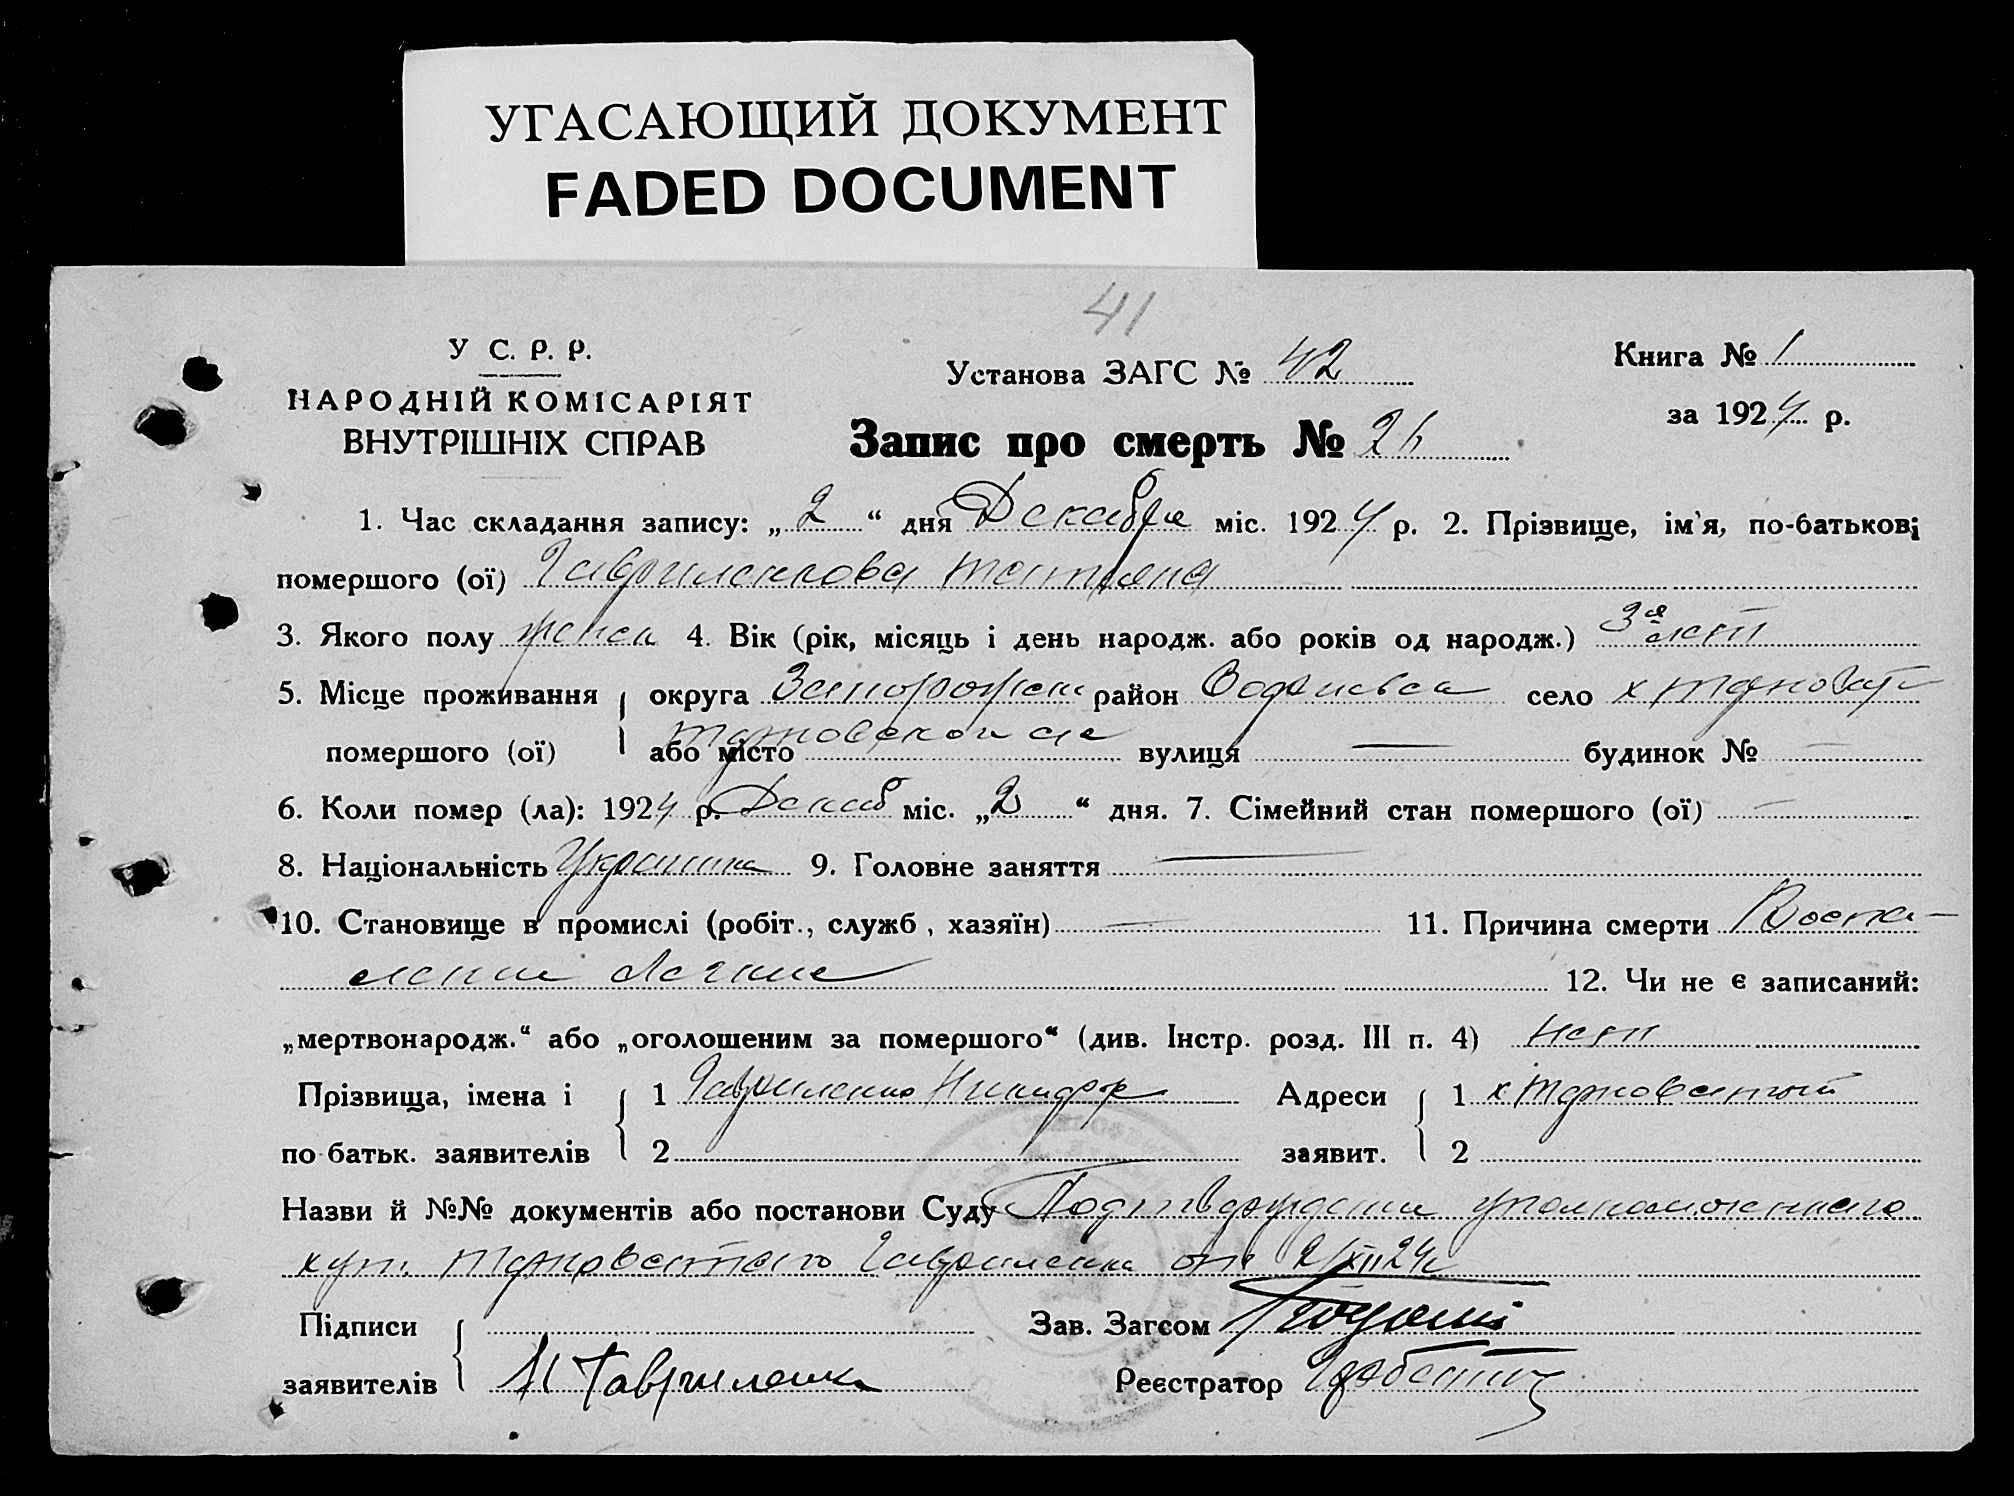 УГАСАЮЩИЙ ДОКУМЕНТ
FADED DOCUMENT
41
У С. Р. Р.
НАРОДНІЙ КОМІСАРІЯТ
ВНУТРІШНІХ СПРАВ
Установа ЗАГС № 42
Книга № 1
за 1924 р.
Запис про смерть №
1. Час складання запису: „2“ дня Декабря міс. 1924 р. 2. Прізвище, ім'я, по-батькові
помершого (ої) Гавриленкова Татяна
3. Якого полу женск 4. Вік (рік, місяць і день народж. або років од народж.) лет
5. Місце проживання округа Запорожск район село х
помершого (ої) або місто вулиця — будинок № —
6. Коли помер (ла): 1924 р. Декаб міс. „2“ дня. 7. Сімейний стан помершого (ої) —
8. Національність Украинка 9. Головне заняття —
10. Становище в промислі (робіт., служб, хазяїн) — 11. Причина смерти Воспа-
ление Легких 12. Чи не є записаний:
„мертвонародж.“ або „оголошеним за помершого“ (див. Інстр. розд. III п. 4) нет
Прізвища, імена і 1 Гавриленко Никифор Адреси 1 х
по батьк. заявителів 2 заявит. 2
Назви й №№ документів або постанови Суду уполномоченного
хут. Гавриленка от 2/XII 24 г
Підписи Зав. Загсом
заявителів Н Гавриленка Реєстратор